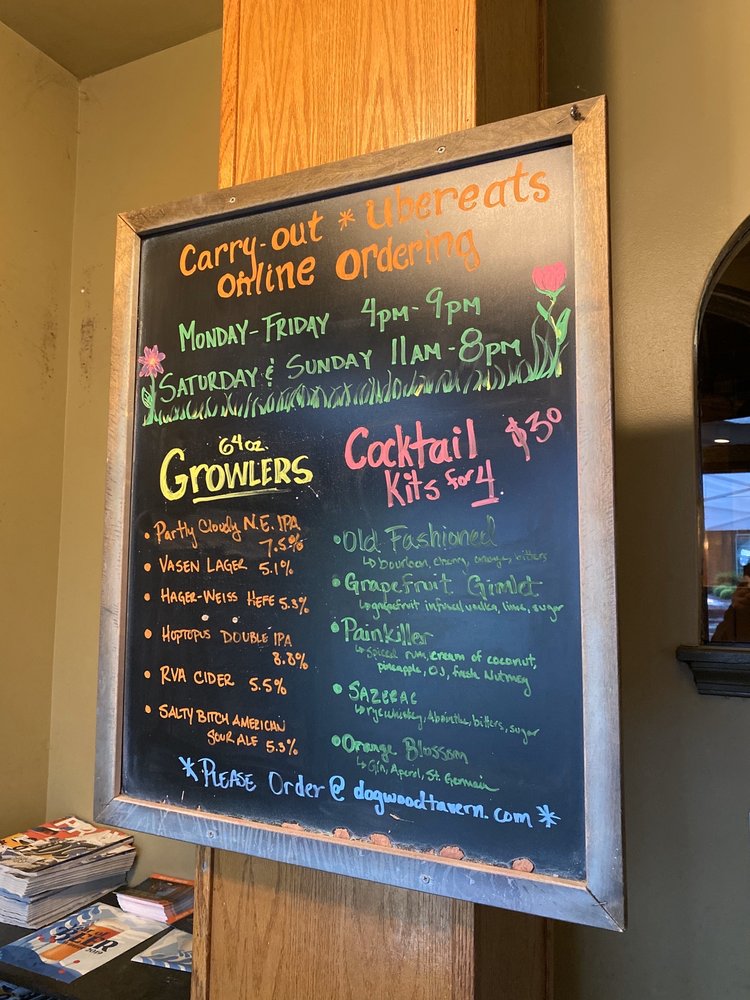 Carry-out * Ubereats
Online Ordering
MONDAY-FRIDAY 4PM-9PM
SATURDAY & SUNDAY 11AM-8PM
64oz.
GROWLERS
• Partly Cloudy N.E. IPA
7.5%
• VASEN LAGER 5.1%
• HAGER-WEISS HEFE 5.3%
• HOPTOPUS DOUBLE IPA
8.8%
• RVA CIDER 5.5%
• SALTY BITCH AMERICAN
SOUR ALE 5.3%
Cocktail $30
Kits for 4
• Old Fashioned
↳ bourbon, cherry, orange, bitters
• Grapefruit Gimlet
↳ grapefruit infused vodka, lime, sugar
• Painkiller
↳ Spiced rum, cream of coconut,
pineapple, OJ, fresh Nutmeg
• SAZERAC
↳ rye whiskey, Absinthe, bitters, sugar
• Orange Blossom
↳ Gin, Aperol, St. Germain
* PLEASE Order @ dogwoodtavern.com *
BEER